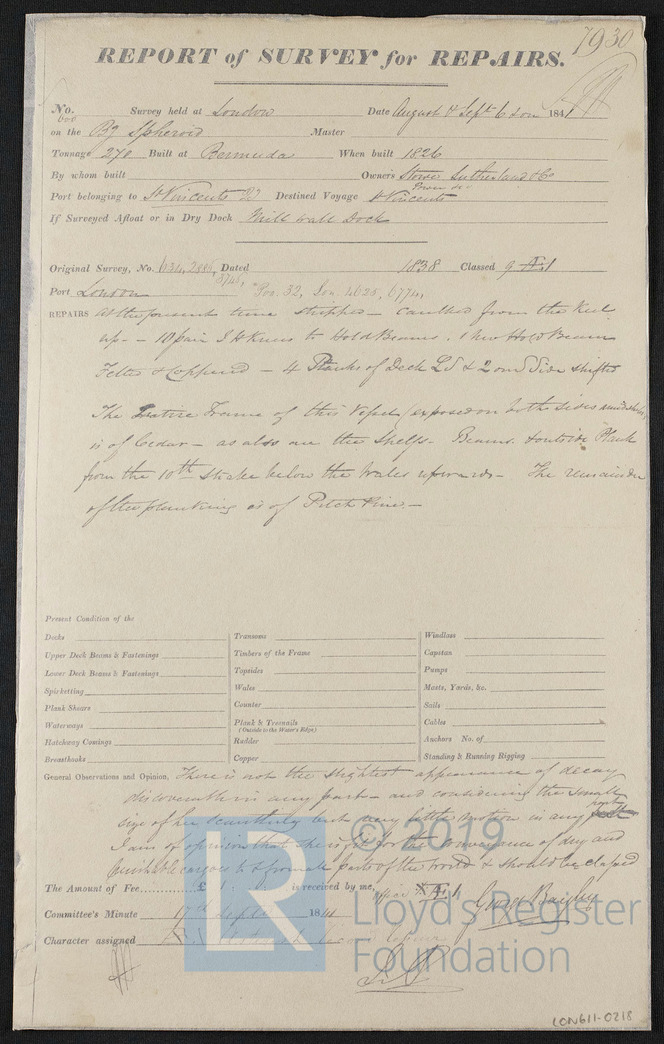 7930
REPORT of SURVEY for REPAIRS.
No. 600 Survey held at London Date August & Sept 6 1841
on the Bg Spheroid Master
Tonnage 270 Built at Bermuda When built 1826
By whom built Owners Stowe Sutherland & Co
Port belonging to St Vincents Destined Voyage St Vincents
If Surveyed Afloat or in Dry Dock Mill wall Dock
Original Survey, No. Dated 1838 Classed 9
Port London Por. 32, Lon. 4625, 6774,
REPAIRS at the present time stripped - caulked from the Keel
up - 10 pair I H Knees to Hold Beams. 1 New Hold Beam
Felted & Coppered - 4 Planks of Deck & 2 on Side shifted
The Entire Frame of this Vessel (exposed on both sides
is of Cedar - as also are the Shelfs - Beams & outside Plank
from the 10th Strake below the Wales upwards - The remainder
of the planking is of Pitch Pine. -
Present Condition of the
Decks
Upper Deck Beams & Fastenings
Lower Deck Beams & Fastenings
Spirketting
Plank Shears
Waterways
Hatchway Comings
Breasthooks
Transoms
Timbers of the Frame
Topsides
Wales
Counter
Plank & Treenails
(Outside to the Water's Edge)
Rudder
Copper
Windlass
Capstan
Pumps
Masts, Yards, &c.
Sails
Cables
Anchors No. of
Standing & Running Rigging
General Observations and Opinion, There is not the slightest appearance of decay
discoverable in any part - and considering the small
size of her scantling but very little motion in any part
I am of opinion that she is fit for the conveyance of dry and
perishable cargoes to & from all parts of the world & should be classed
The Amount of Fee £ is received by me,
Committee's Minute 17th Sept 1841
Character assigned
© 2019
LR
Lloyd's Register
Foundation
LON611-0218